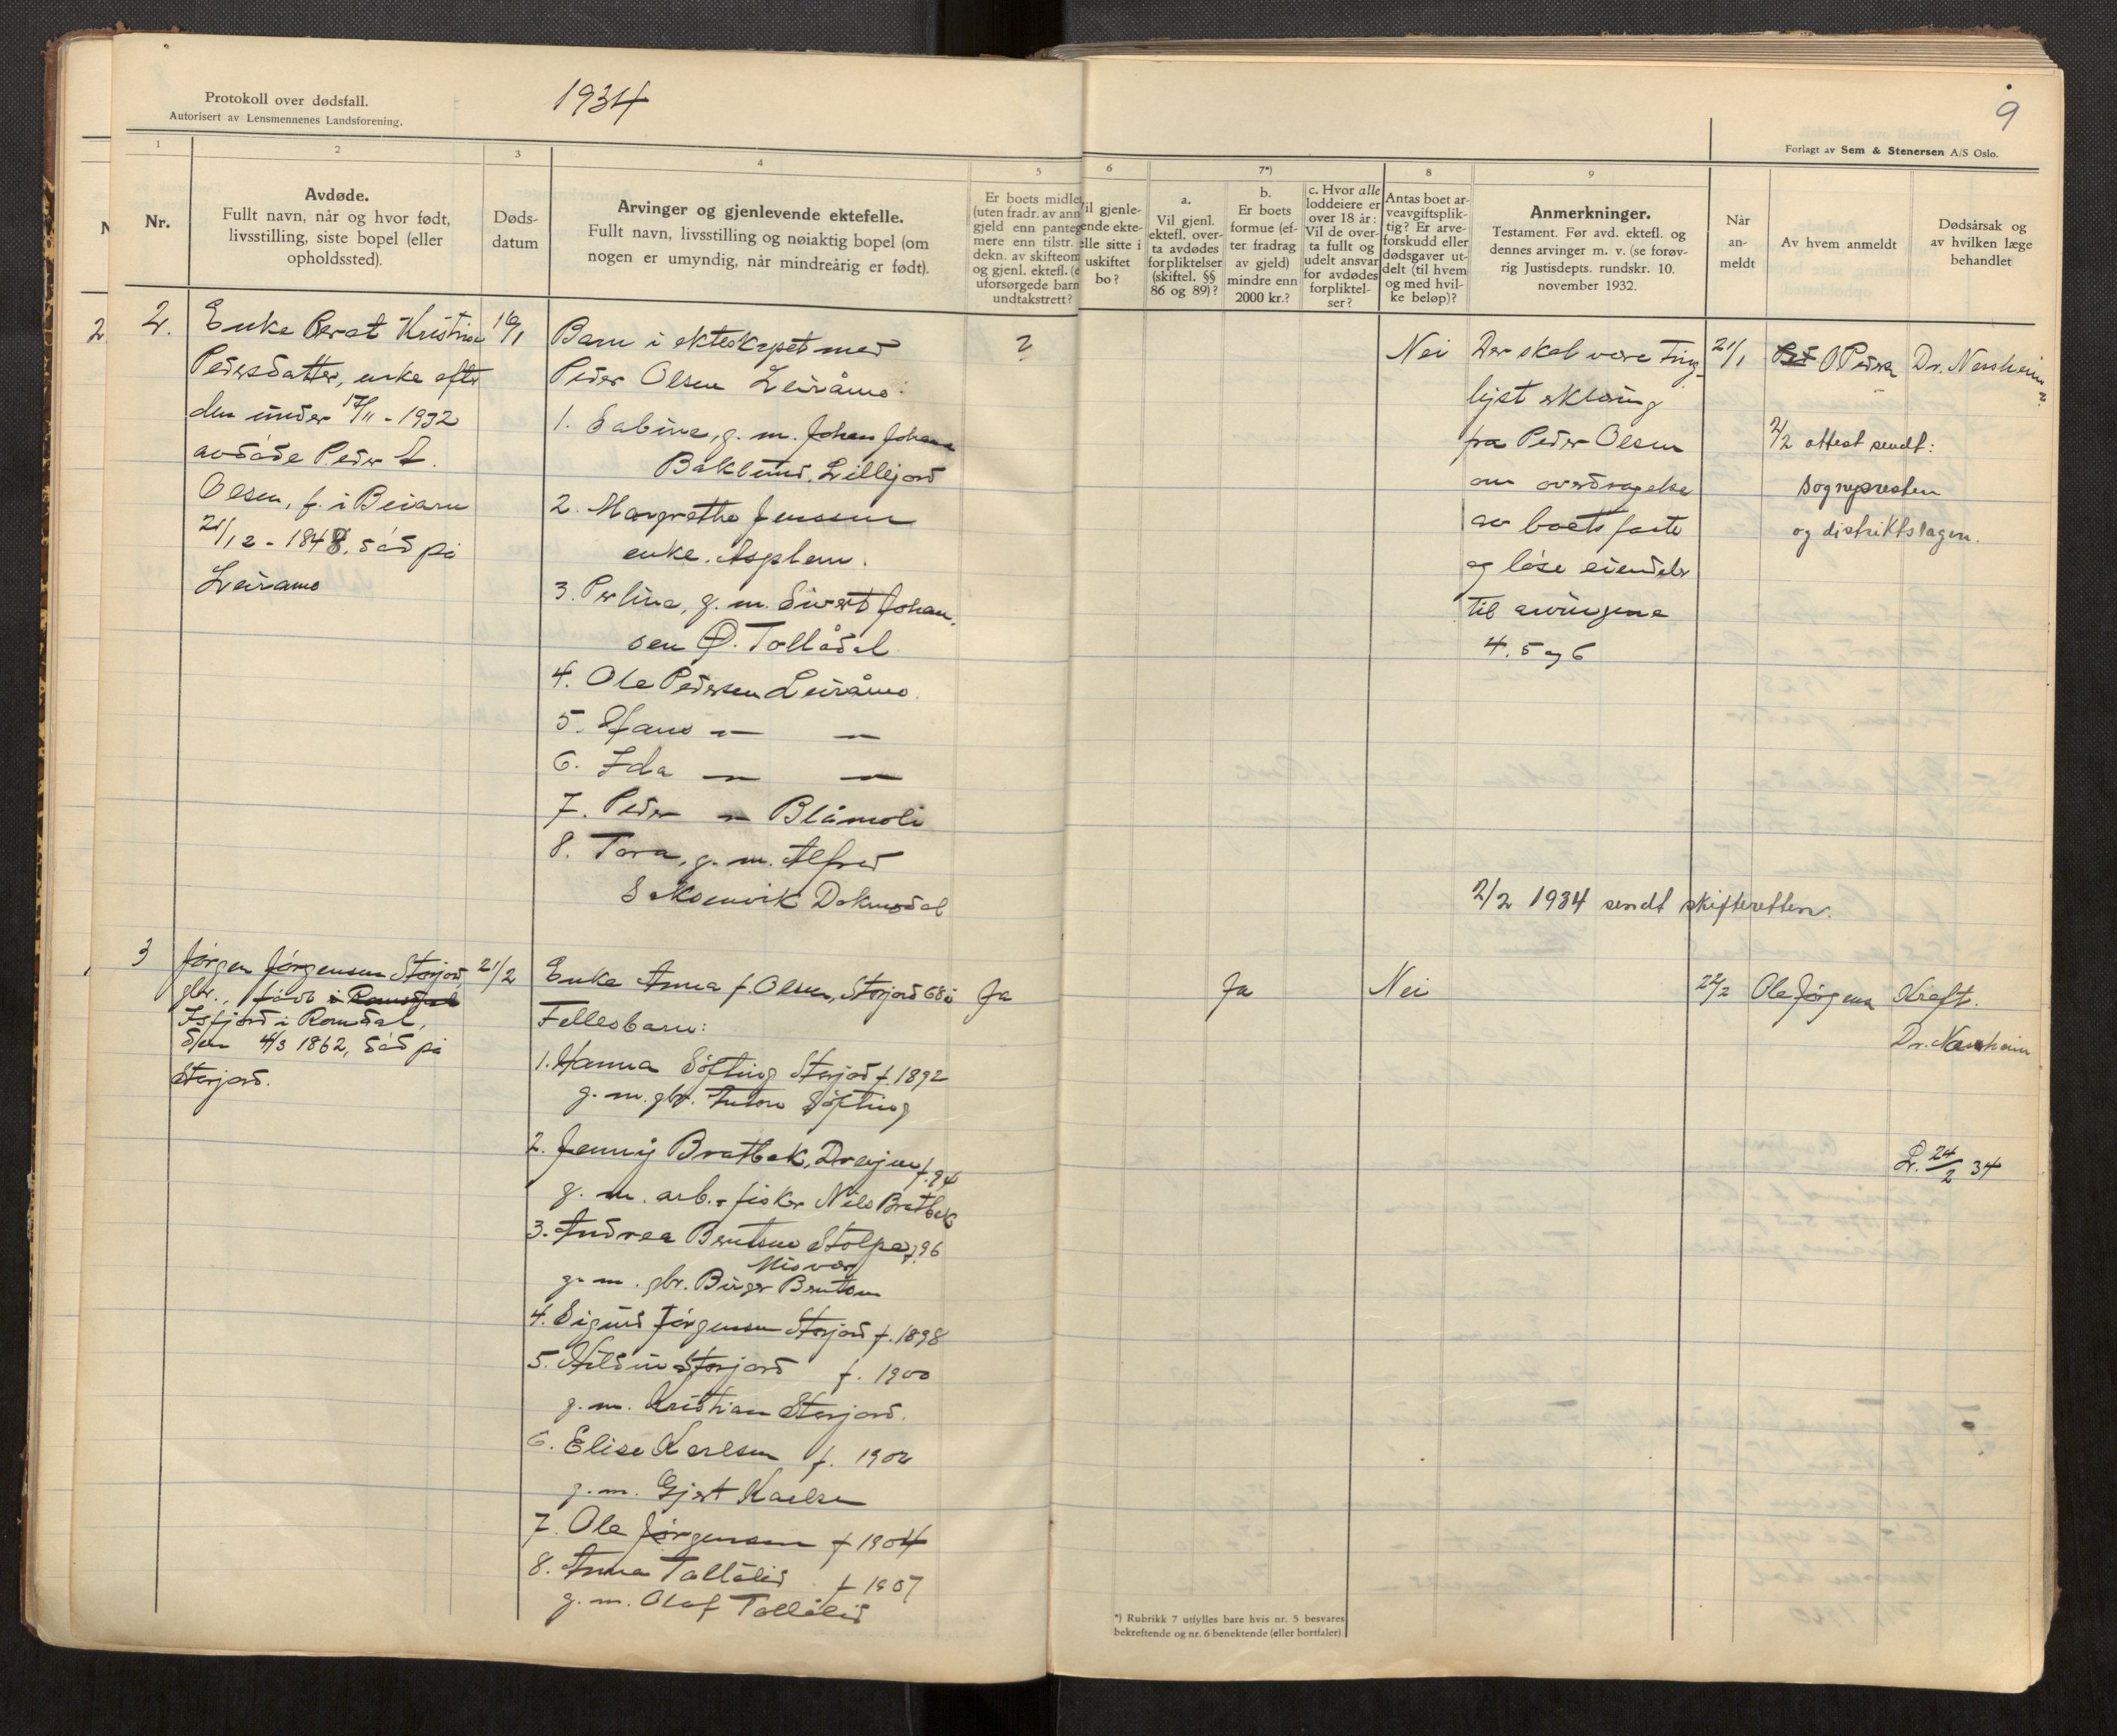 Protokoll over dødsfall.
Autorisert av Lensmennenes Landsforening.
1934
9
Forlagt av Sem & Stenersen A/S Oslo.
1
2
3
4
5
6
7*)
8
9
Nr.
Avdøde.
Fullt navn, når og hvor født,
livsstilling, siste bopel (eller
opholdssted).
Døds-
datum
Arvinger og gjenlevende ektefelle.
Fullt navn, livsstilling og nøiaktig bopel (om
nogen er umyndig, når mindreårig er født).
Er boets midler
(uten fradr. av ann
gjeld enn panteg
mere enn tilstr.
dekn. av skifteom
og gjenl. ektefl. (e
uforsørgede barn
undtakstrett?
Vil gjenle-
ende ekte-
elle sitte i
uskiftet
bo?
a.
Vil gjenl.
ektefl. over-
ta avdødes
forpliktelser
(skiftel. §§
86 og 89)?
b.
Er boets
formue (ef-
ter fradrag
av gjeld)
mindre enn
2000 kr.?
c. Hvor alle
loddeiere er
over 18 år:
Vil de over-
ta fullt og
udelt ansvar
for avdødes
forpliktel-
ser?
Antas boet ar-
veavgiftsplik-
tig? Er arve-
forskudd eller
dødsgaver ut-
delt (til hvem
og med hvil-
ke beløp)?
Anmerkninger.
Testament. Før avd. ektefl. og
dennes arvinger m. v. (se forøv-
rig Justisdepts. rundskr. 10.
november 1932.
Når
an-
meldt
Av hvem anmeldt
Dødsårsak og
av hvilken læge
behandlet
2
2.
Enke Berat Kristine
Pedersdatter, enke efter
den under 17/11 - 1932
avdøde Peder A.
Olsen, f. i Beiarn
21/12 - 1848, død på
Leiramo
16/1
Barn i ekteskapet med
Peder Olsen Leiråmo:
1. Sabine, g. m. Johan Johans
Baklund, Lillejord
2. Margrethe Jensen
enke. Asphem.
3. Perline, g. m. Sivert Johan.
sen Ø. Tollådal
4. Ole Pedersen Leiråmo.
5. Hans — —
6. Ida — —
7. Peder — Blåmoli
8. Tora, g. m. Alfred
Saksenvik Dokmodal
?
Nei
Der skal være Ting-
lyst erklæring
fra Peder Olsen
om overdragelse
av boets faste
og løse eiendeler
til arvingene
4. 5 og 6
2/2 1934 sendt skifteretten.
21/1
O Peders
Dr. Nersheim
?
2/2 attest sendt:
sognepresten
og distriktslægen.
3
Jørgen Jørgensen Storjord,
gbr., født i Romsdal
Isfjord i Romsdal,
den 4/3 1862, død på
Storjord.
21/2
Enke Anna f. Olsen, Storjord 68 å
Fellesbarn:
1. Hanna Søfting Storjord f. 1892
g. m. gbr. Anton Søfting
2. Jenny Bratbak, Dreyen f. 94
g. m. arb. - fisker Nils Bratbak
3. Andrea Bentsen Stolpe f. 96
Misvær
g. m. gbr. Birger Bentsen
4. Sigurd Jørgensen Storjord f. 1898
5. Hildur Storjord f. 1900
g. m. Kristian Storjord.
6. Elise Karlsen f. 1902
g. m. Gjert Karlsen
7. Ole Jørgensen f 1904
8. Anna Tollålid f 1907
g. m. Olaf Tollålid
Ja
Ja
Nei
22/2
Ole Jørgens
Kreft.
Dr. Nersheim
L. 24/2 34
*) Rubrikk 7 utfylles bare hvis nr. 5 besvares
bekreftende og nr. 6 benektende (eller bortfaler).